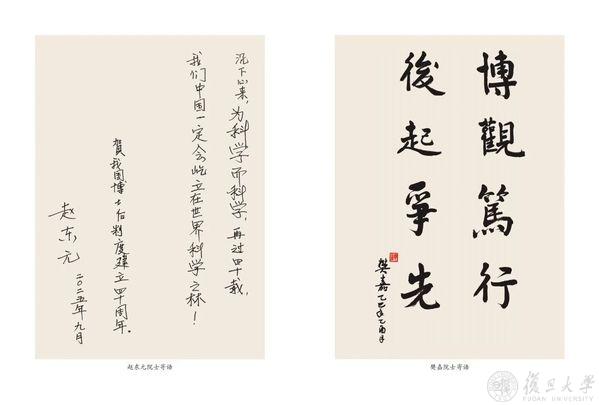 沉下心来，为科学而科学，再过四十载，
我们中国一定会屹立在世界科学之林！
賀我国博士后制度建立四十周年。
赵东元
二〇二五年九月
赵东元院士寄语
博觀篤行
後起爭先
樊嘉 乙巳年乙酉月
樊嘉院士寄语
復旦大學
FUDAN UNIVERSITY